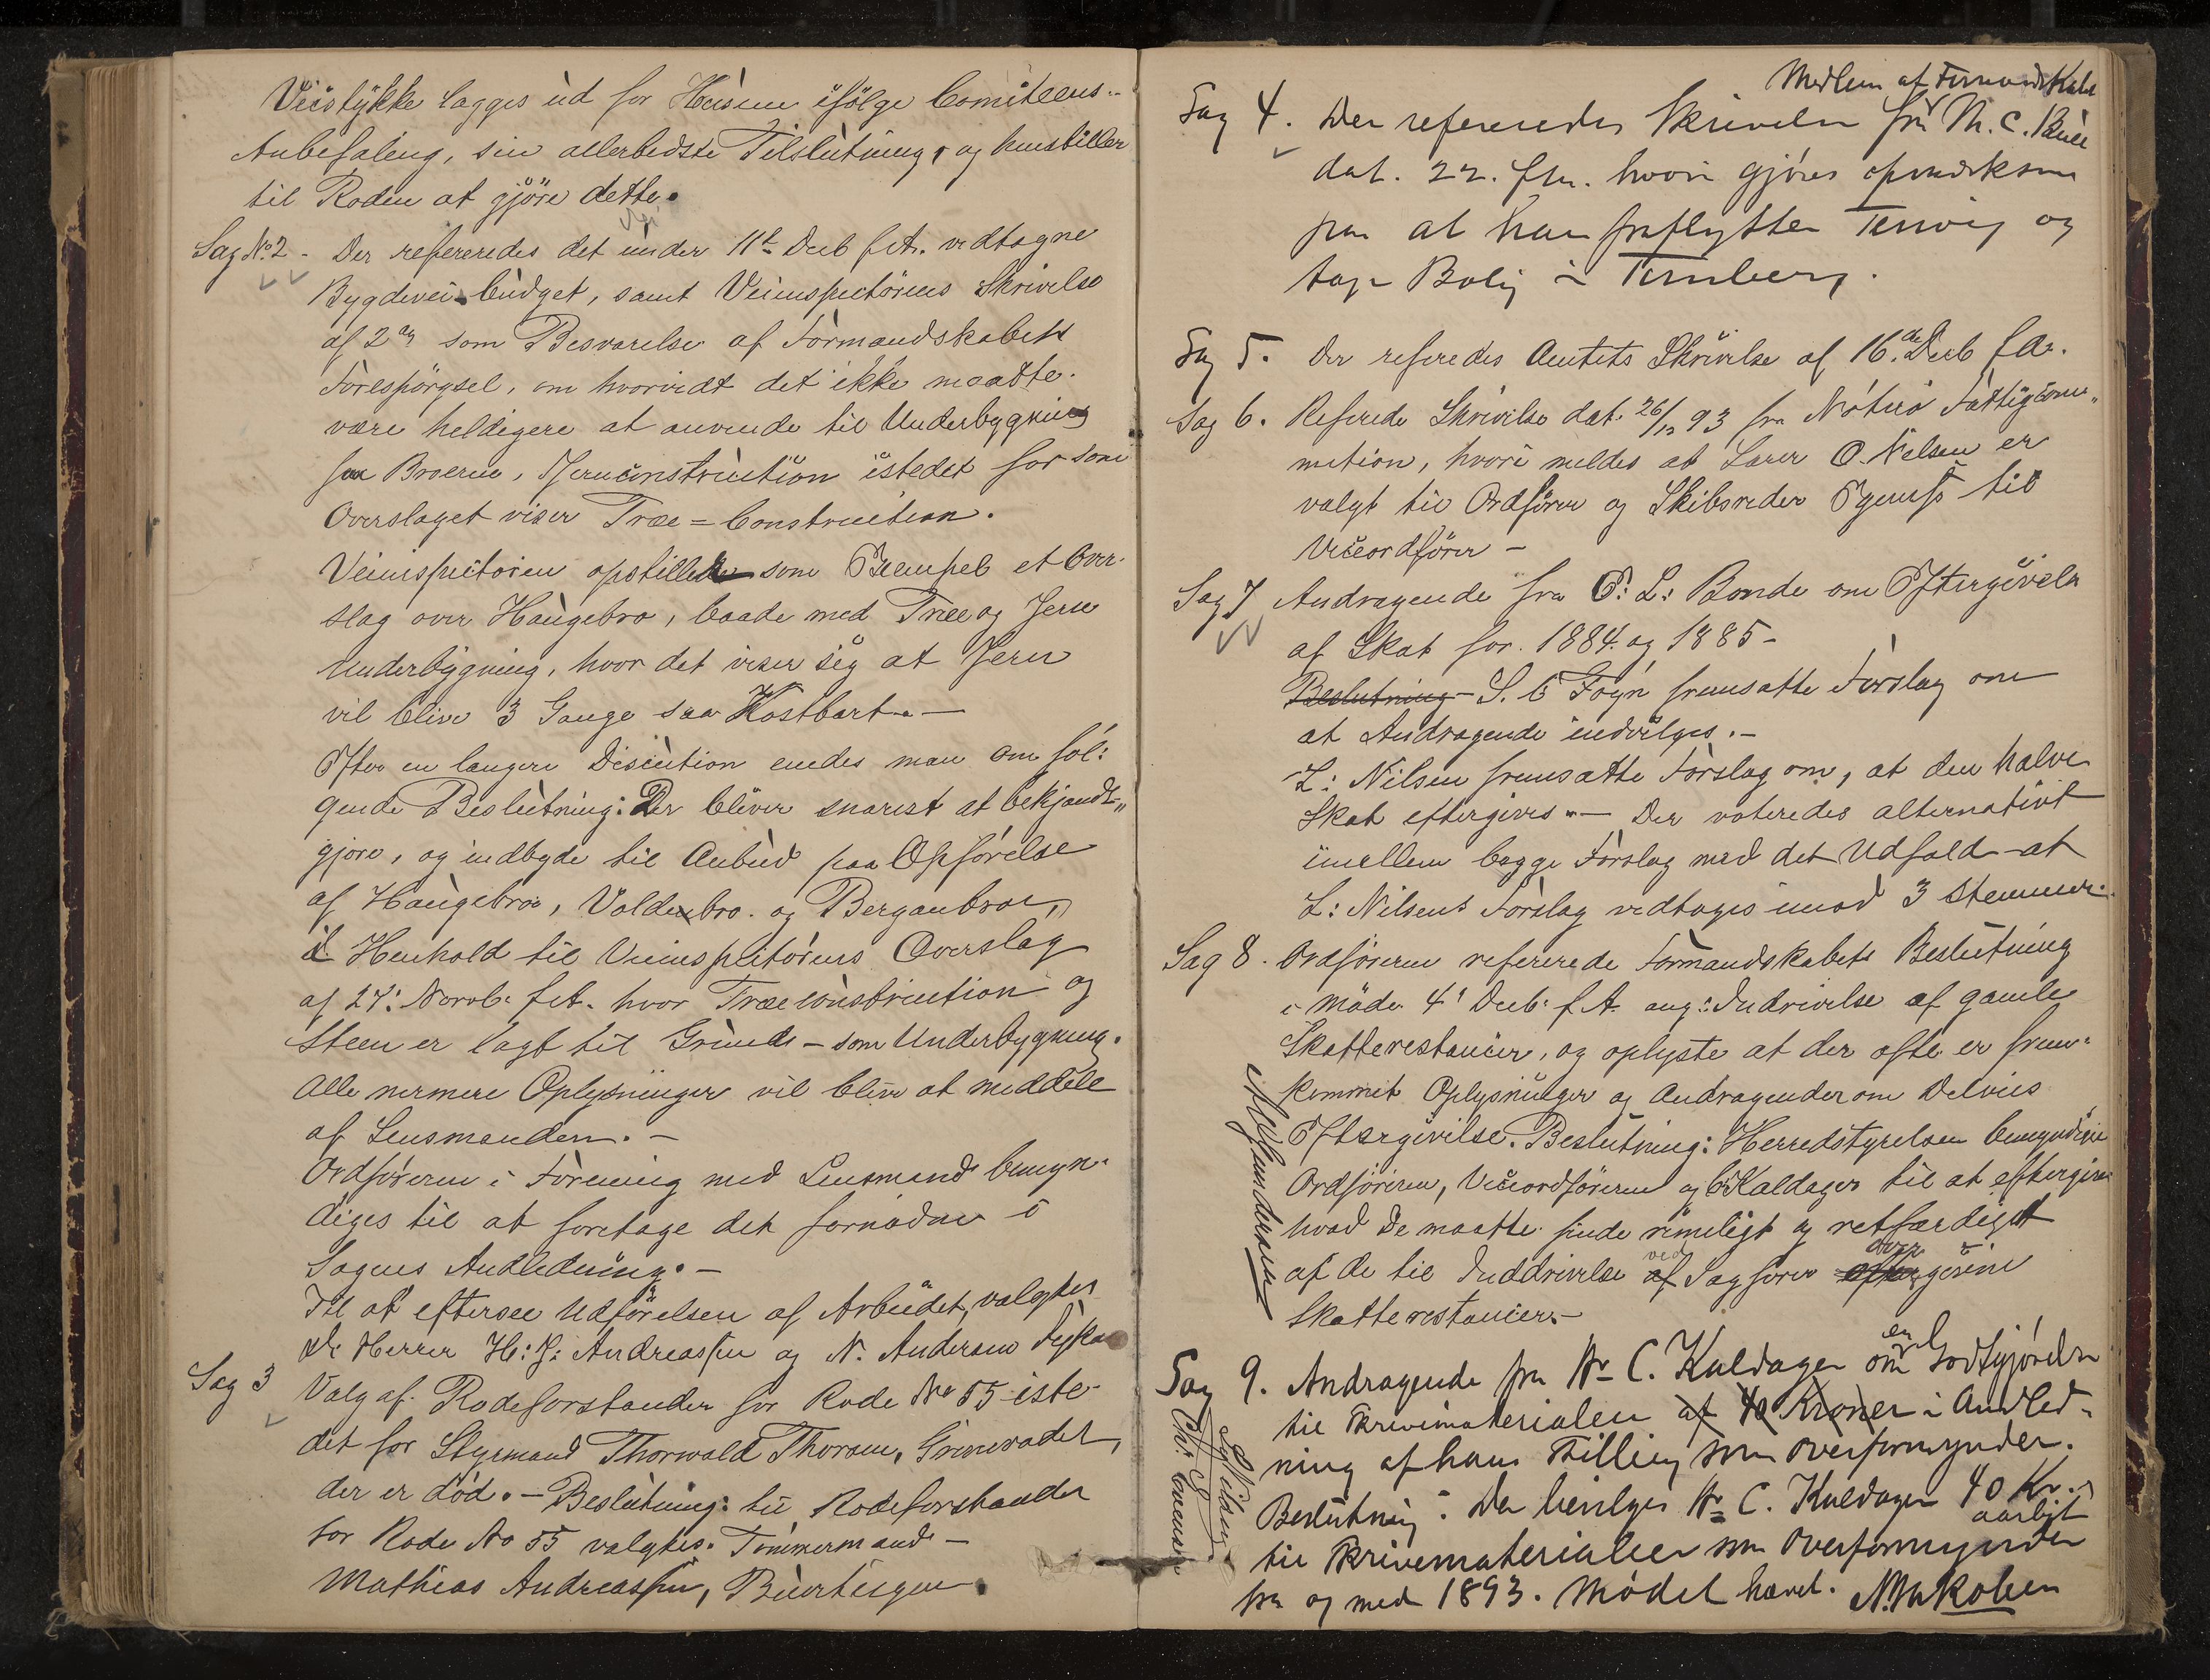 Veistykke lagges ud for Husene ifölge Comiteens
Anbefaling, sin allerbedste Tilslutning, og henstiller
til Roden at gjöre dette.
Sag No 2. Der refereredes det under 11te Decb f.A. vedtagne
Bygdevei-budget, samt Veiinspectörens Skrivelse
af 2den som Besvarelse af Formandskabets
Forespörgsel, om hvorvidt det ikke maatte
være heldigere at anvende til Underbygning
paa Broerne, Jernconstruction istedet for som
Overslaget viser Træ=Construction.
Veiinspectoren opstillede som Exempel et Over-
slag over Haugebro, baade med Træ og Jern
Underbygning, hvor det viser sig at Jern
vil blive 3 Gange saa Kostbart. —
Efter en længere Discution enedes man om föl:
gende Beslutning: Der bliver snarest at bekjendt-
gjöre, og indbyde til Anbud paa Opförelse
af Haugebro, Voldenbro. og Berganbroe,
i Henhold til Veiinspectörens Overslag
af 27: Novb: f.A. hvor Træconstruction og
Steen er lagt til Grund – som Underbygning.
Alle nærmere Oplysninger vil blive at meddele
af Lensmanden. —
Ordföreren i Forening med Lensmand bemyn-
diges til at foretage det fornödne i
Sagens Anledning. —
Til at eftersee Udförelsen af Arbeidet, valgtes
de Herrer H: J: Andreassen og N. Anderson
Sag 3 Valg af Rodeforstander for Rode No 55 iste-
det for Styrmand Thorwald Thorsen, Grimerødet,
der er död. — Beslutning: til Rodeforstander
for Rode No 55 valgtes. Tömmermand —
Mathias Andreassen, Buerteigen.
Medlem af Formandskabet
Sag 4. Der refereredes Skrivelse fra M. C. Bull
dat. 22. f.m. hvori gjöres opmerksom
paa at han fraflytter og
tage Bolig i Tønsberg.
Sag 5. Der referedes Amtets Skrivelse af 16de Decb f.A.
Sag 6. Referede Skrivelse dat. 26/12 93 fra Nöterö Fattigcom-
mition, hvori meldes at Lærer O. Nilsen er
valgt til Ordförer og Skibsreder til
Viceordförer —
Sag 7 Andragende fra O: L: Bonde om Eftergivelse
af Skat for. 1884. og 1885 –
Beslutning – S. C Föyn fremsatte Forslag om
at Andragende indvilges. —
L: Nilsen fremsatte Forslag om, at den halve
Skat eftergives. — Der voteredes alternativt
imellem begge Forslag med det Udfald at
L: Nilsens Forslag vedtages imod 3 Stemmer.
Sag 8. Ordföreren refererede Formandskabets Beslutning
i möde 4de Decb: f.A. ang: Inddrivelse af gamle
Skatterestancer, og oplyste at der ofte er frem-
kommet Oplysninger og Andragender om Delvis
Eftergivelse. Beslutning: Herredstyrelsen bemyndiger
Ordföreren, Viceordföreren og C: Kaldager til at eftergive
hvad De maatte finde rimeligt og retfærdigst
af de til Inddrivelse af ved Sagförer efter over givne
Skatterestancer. —
Sag 9. Andragende fra Hr C. Kaldager om en Godtgjörelse
til Skrivematerialer af 40 Kroner i Anled-
ning af hans Stilling som Overformynder.
Beslutning: Der bevilges Hr C. Kaldager 40 Kr.
aarligt
til Skrivematerialier som Overformynder
fra og med 1893. Mödet hævet. N. Jakobsen